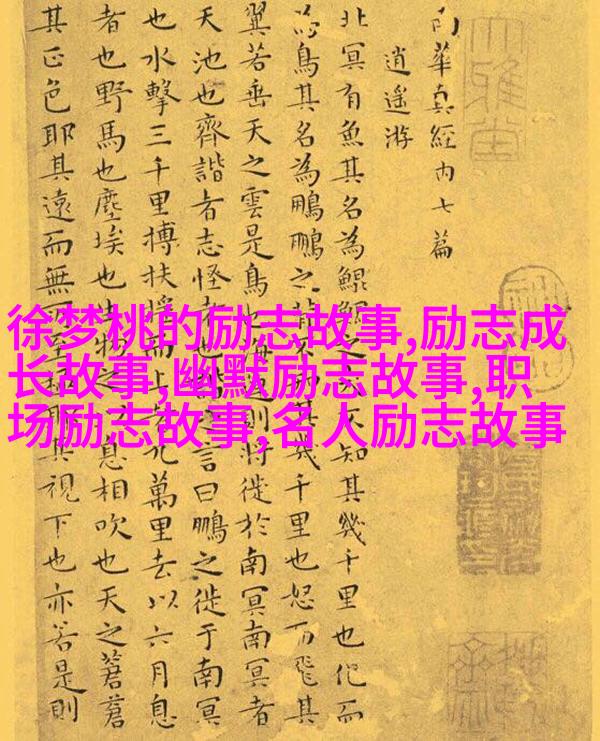 徐梦桃的励志故事,励志成
长故事,幽默励志故事,职
场励志故事,名人励志故事
南華真經內七篇
逍遥游
北冥有魚其名為鯤鯤之大不知其幾千里也化而
為鳥其名為鵬鵬之背不知其幾千里也怒而飛其
翼若垂天之雲是鳥也海運則將徙於南冥南冥者
天池也齊諧者志怪者也諧之言曰鵬之徙于南冥
也水擊三千里摶扶搖而上者九萬里去以六月息
者也野馬也塵埃也生物之以息相吹也天之蒼蒼
其正色耶其遠而無所至極耶其視下也亦若是則